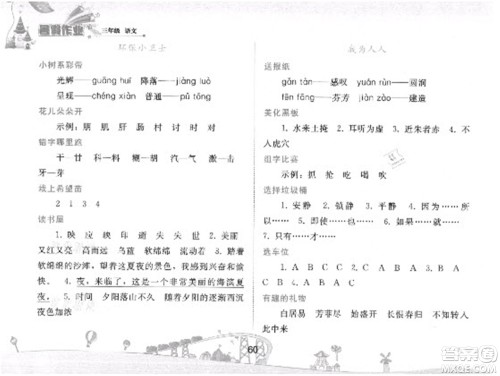 暑假作业
三年级 语文
环保小卫士
小树系彩带
光辉——guāng huī 降落——jiàng luò
呈现——chéng xiàn 普通——pǔ tōng
花儿朵朵开
示例：朋 肌 肝 村 讨 时 对
错字哪里跑
干—甘 科—料 糊—湖 汽—气 激—击
牙—芽
线上希望茧
2 1 3 4
读书屋
1. 映 应 映 印 盾 失 失 世 2. 美丽
又红又亮 高高兴兴 蓝蓝 软绵绵 又红又亮
软绵绵的沙滩，望着这夏夜的景色，我高兴极了。
4. 夜，来临了，这是一个非常美丽的海滨夏
夜。 5. 时间 夕阳落山不久 随着夕阳的落山
成为人人
送报纸
gǎn tàn——感叹 圆润
fēn fāng——芬芳 jiàn zào——建造
美化黑板
1. 水来土掩 2. 耳听为虚 3. 近朱者赤 4. 不
入虎穴
组字比赛
示例：抓 抢 吃 喝 吹
选择垃圾桶
1. 安静 2. 镇静 3. 平静 4. 因为……
所以…… 5. 即使……也…… 6. 如果……就……
7. 只有……才……
选车位
1. A B C C 2. C A B A
有趣的礼物
白居易 芳菲尽 始盛开 长恨春归 不知转入
此中来
60